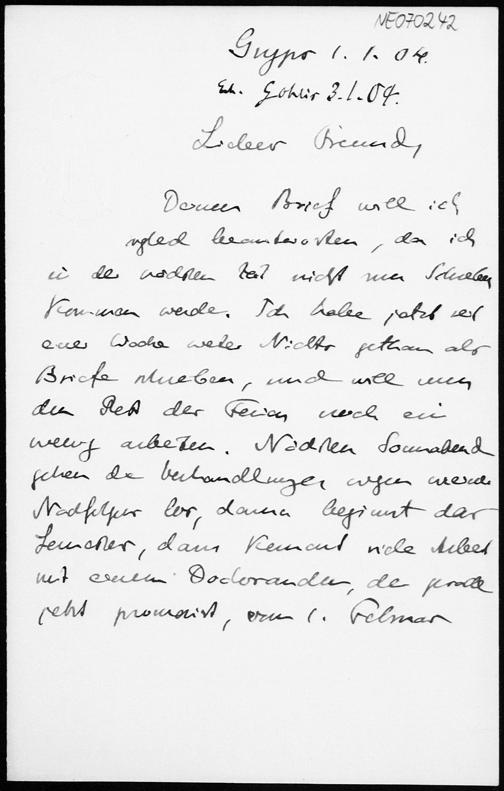 NE070242
1. 1. 04.
Erh. Gohlis 3.1.04.
Lieber Freund,
Deinen Brief will ich
gleich beantworten, da ich
in der nächsten Zeit nicht zum Schreiben
kommen werde. Ich habe jetzt seit
einer Woche weiter Nichts gethan als
Briefe schreiben, und will nun
den Rest der Ferien noch ein
wenig arbeiten. Nächsten Sonnabend
gehen die Verhandlungen wegen meiner
Nachfolger los, dann beginnt das
Semester, dann kommt viele Arbeit
mit einem Doctoranden, der gerade
jetzt promovirt, vom 1. Februar